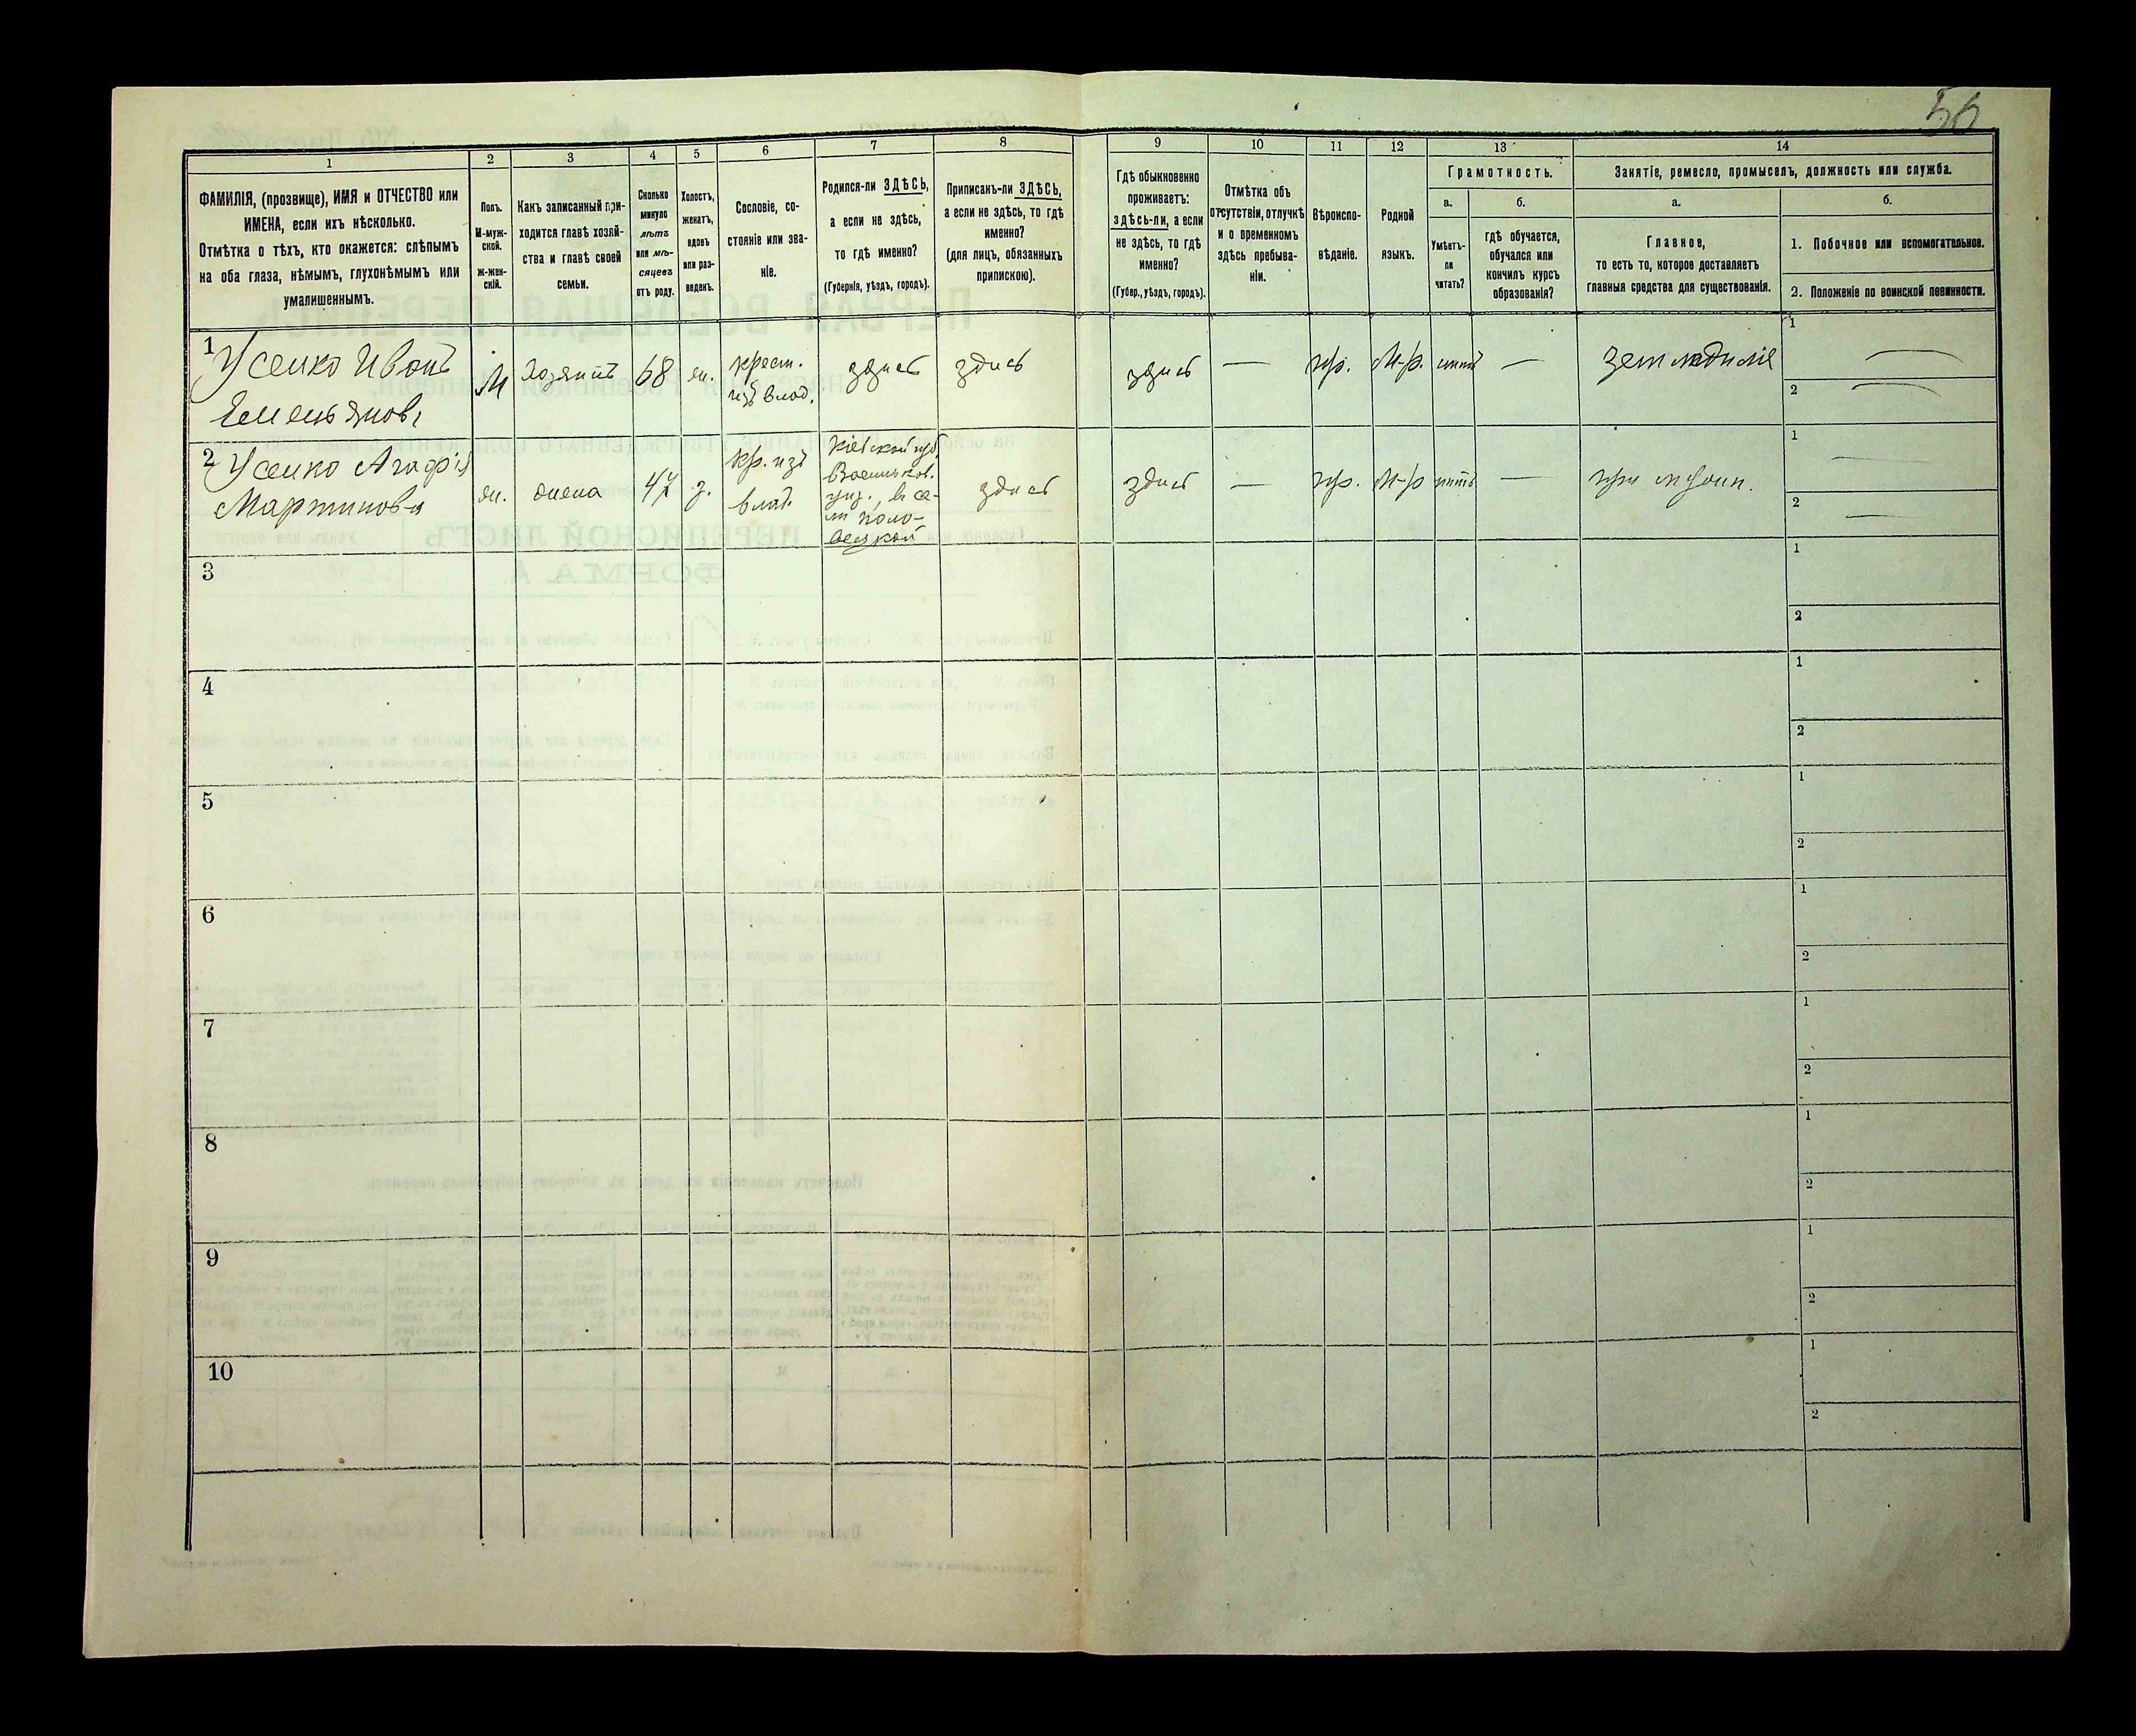 56
1
2
3
4
5
6
7
8
9
10
11
12
13
14
ФАМИЛІЯ, (прозвище), ИМЯ и ОТЧЕСТВО или
ИМЕНА, если ихъ нѣсколько.
Отмѣтка о тѣхъ, кто окажется: слѣпымъ
на оба глаза, нѣмымъ, глухонѣмымъ или
умалишеннымъ.
Полъ.
М-муж-
ской.
Ж-жен-
скій.
Какъ записанный при-
ходится главѣ хозяй-
ства и главѣ своей
семьи.
Сколько
минуло
лѣтъ
или мѣ-
сяцевъ
отъ роду.
Холостъ,
женатъ,
вдовъ
или раз-
веденъ.
Сословіе, со-
стояніе или зва-
ніе.
Родился-ли ЗДѢСЬ,
а если не здѣсь,
то гдѣ именно?
(Губернія, уѣздъ, городъ).
Приписанъ-ли ЗДѢСЬ,
а если не здѣсь, то гдѣ
именно?
(для лицъ, обязанныхъ
припискою).
Гдѣ обыкновенно
проживаетъ:
здѣсь-ли, а если
не здѣсь, то гдѣ
именно?
(Губер., уѣздъ, городъ).
Отмѣтка объ
отсутствіи, отлучкѣ
и о временномъ
здѣсь пребыва-
ніи.
Вѣроиспо-
вѣданіе.
Родной
языкъ.
Грамотность.
а.
Умѣетъ-
ли
читать?
б.
гдѣ обучается,
обучался или
кончилъ курсъ
образованія?
Занятіе, ремесло, промыселъ, должность или служба.
а.
Главное,
то есть то, которое доставляетъ
главныя средства для существованія.
б.
1. Побочное или вспомогательное.
2. Положеніе по воинской повинности.
1
Усенко Иванъ
Емельяновъ
М
Хозяинъ
68
ж.
крест.
изъ влад.
здѣсь
здѣсь
здѣсь
—
пр.
М-р.
нѣтъ
—
земледѣліе
1 —
2 —
2
Усенко Агафія
Мартинова
ж.
жена
47
з.
кр. изъ
влад.
Кіевской губ.
Васильков.
уѣз., въ се-
лѣ
здѣсь
здѣсь
—
пр.
М-р
нѣтъ
—
при мужѣ
1 —
2 —
3
1
2
4
1
2
5
1
2
6
1
2
7
1
2
8
1
2
9
1
2
10
1
2